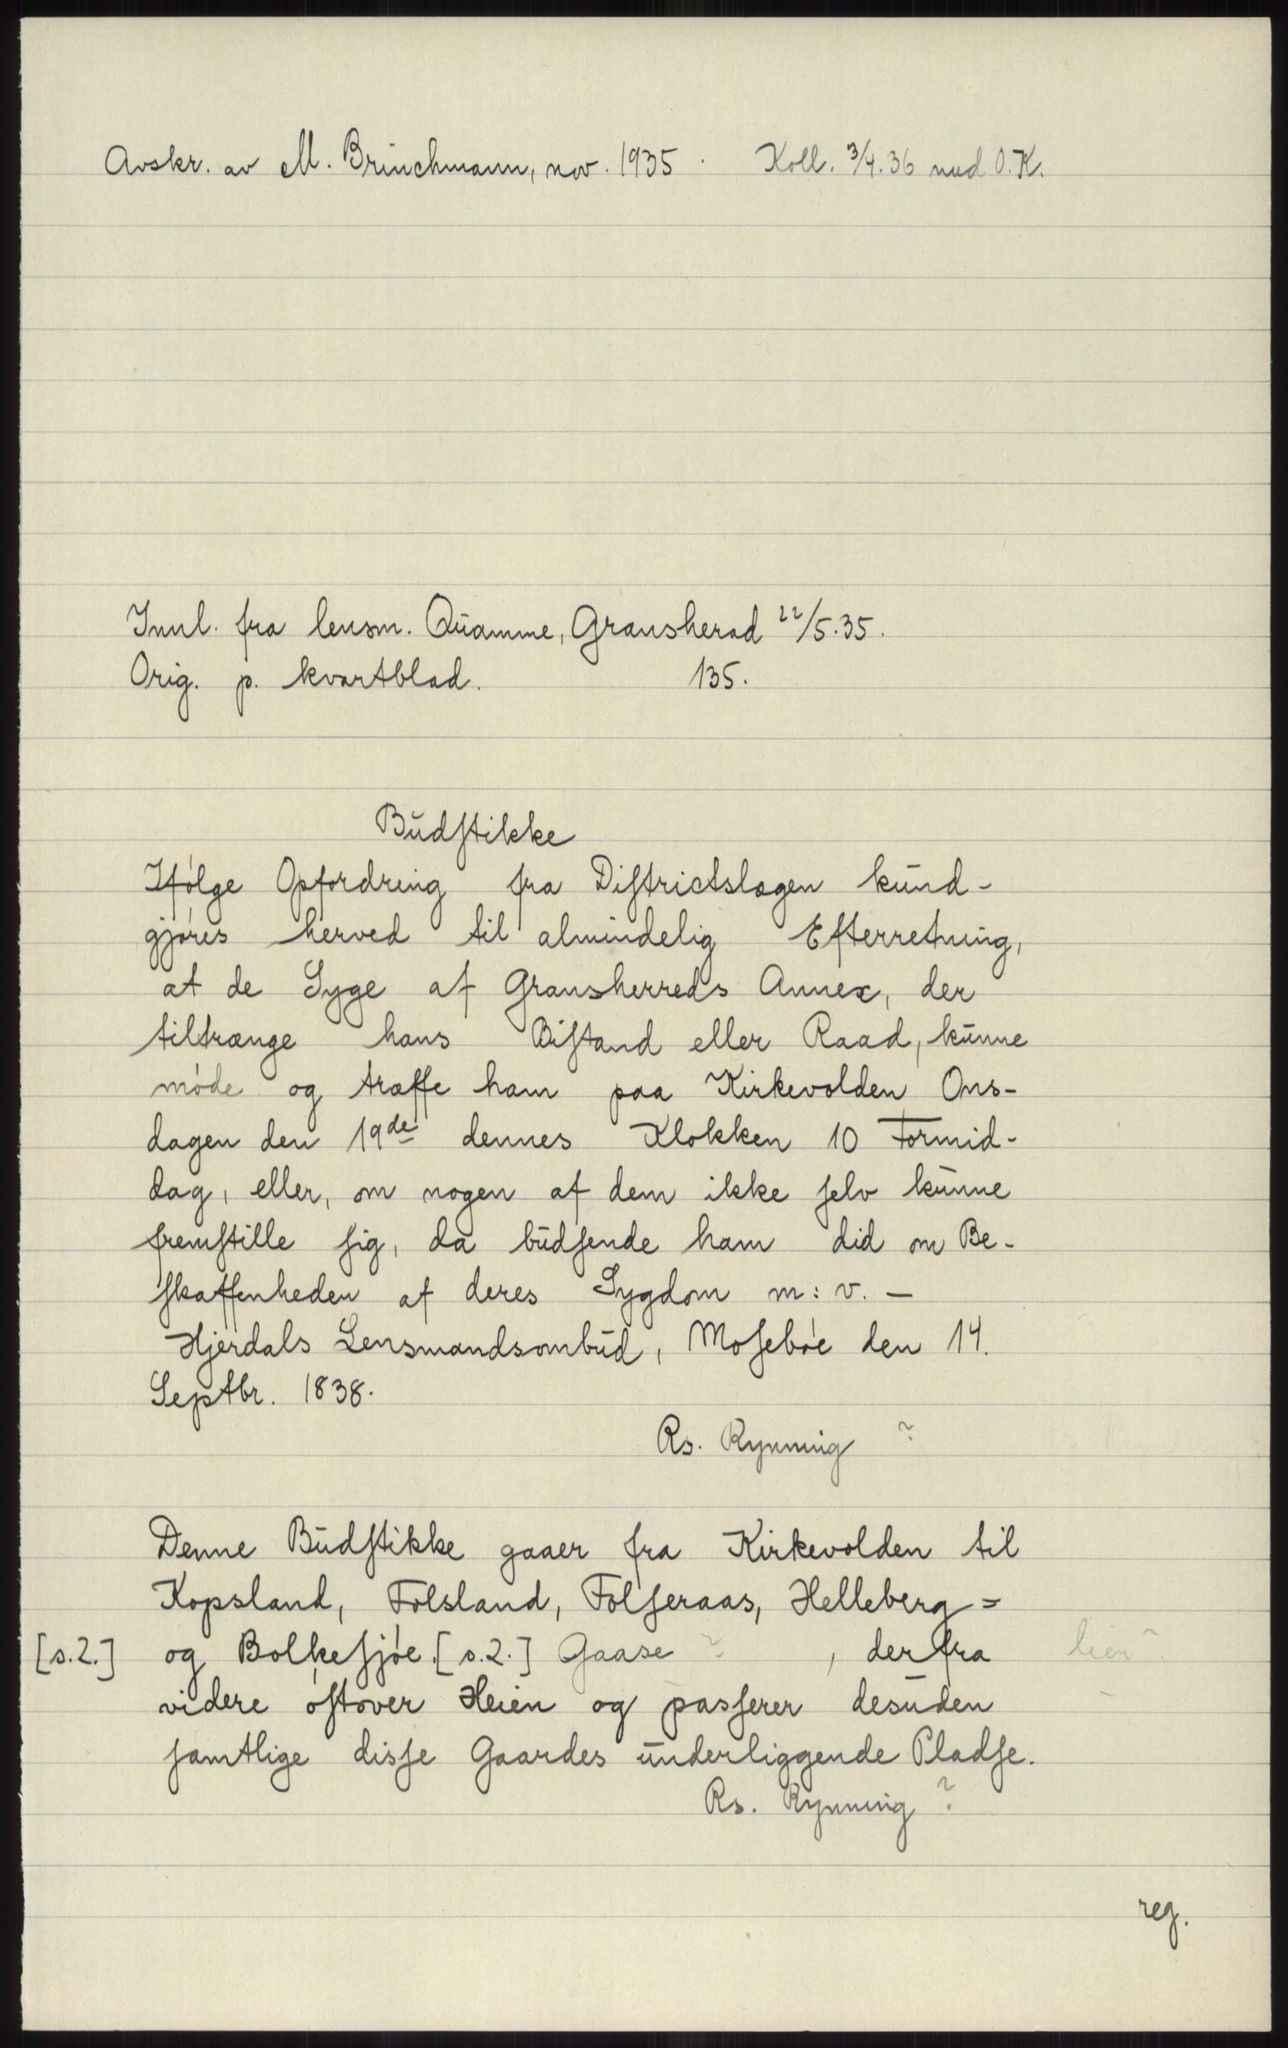 Avskr. av M. Brinchmann, nov. 1935. Koll. 3/4.36 med O.K.
Innl. fra lensm. Quamme, Gransherad 22/5.35.
Orig. p. kvartblad. 135.
Budstikke
Ifølge Opfordring fra Districtslægen kund-
gjøres herved til almindelig Efterretning,
at de Syge af Gransherreds Annex, der
tiltrænge hans Bistand eller Raad, kunne
møde og træffe ham paa Kirkevolden Ons-
dagen den 19de dennes Klokken 10 Formid-
dag, eller, om nogen af dem ikke selv kunne
fremstille sig, da budsende ham did om Be-
skaffenheden af deres Sygdom m: v. —
Hjerdals Lensmandsombud, Mosebøe den 14.
Septbr. 1838.
Rs. Rynning ?
Denne Budstikke gaaer fra Kirkevolden til
Kopsland, Folsland, Folseraas, Helleberg=
[s.2.] og Bolkesjøe. [s.2.] Gaase ? , derfra lien ?
videre østover Heien og passerer desuden
samtlige disse Gaardes underliggende Pladse.
Rs. Rynning ?
reg.